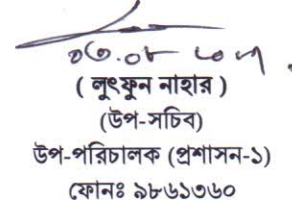 ( লুৎফুন নাহার )
(উপ-সচিব)
উপ-পরিচালক (প্রশাসন-১)
ফোনঃ ৯৮৬১৩৬০